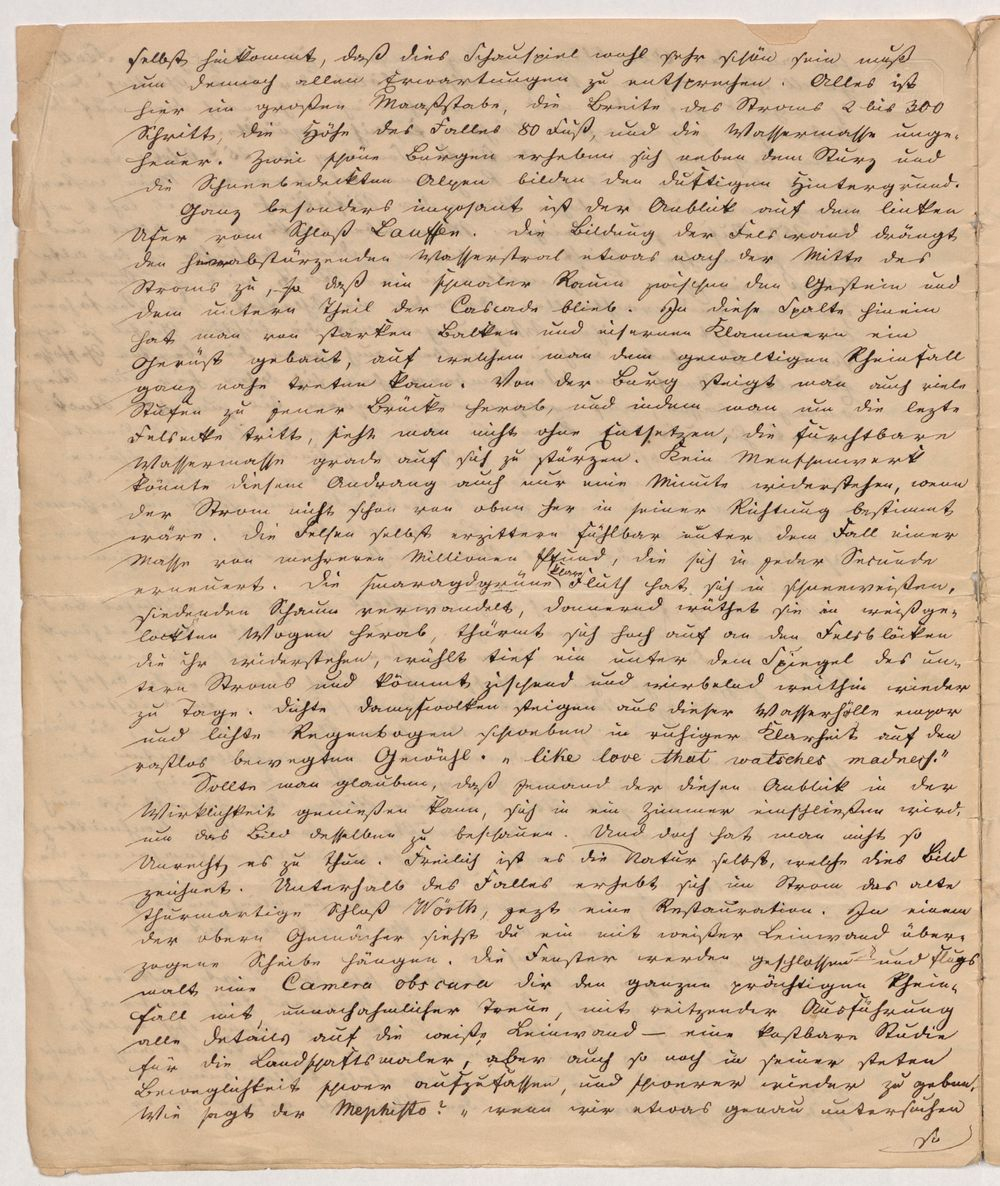 selbst hinkommt, daß dies Schauspiel wohl sehr schön sein muß
um dennoch allen Erwartungen zu entsprechen. Alles ist
hier im großen Maaßstabe, die Breite des Stroms 2 bis 300
Schritt, die Höhe des Falles 80 Fuß, und die Wassermasse unge-
heuer. Zwei schöne Burgen erheben sich neben dem Sturz und
die Schneebedeckten Alpen bilden den duftigen Hintergrund.
Ganz besonders imposant ist der Anblick auf dem linken
Ufer vom Schloß Lauffen. Die Bildung der Felswand drängt
den herabstürzenden Wasserstral etwas nach der Mitte des
Stroms zu, so daß ein schmaler Raum zwischen den Gestein und
dem untern Theil der Cascade blieb. In diese Spalte hinein
hat man von starken Balken und eisernen Klammern ein
Gerüst gebaut, auf welchem man dem gewaltigen Rheinfall
ganz nahe treten kann. Von der Burg steigt man auch viele
Stufen zu jener Brücke herab, und indem man um die lezte
Felsecke tritt, sieht man nicht ohne Entsetzen, die furchtbare
Wassermasse grade auf sich zu stürzen. Kein Menschenwerk
könnte diesem Andrang auch nur eine Minute widerstehen, wenn
der Strom nicht schon von oben her in seiner Richtung bestimmt
wäre. Die Felsen selbst erzittern fühlbar unter dem Fall einer
Masse von mehreren Millionen Pfund, die sich in jeder Secunde
erneuert. Die smaragdgrüne klare Fluth hat sich in schneeweißen,
siedenden Schaum verwandelt, donnernd wüthet sie in weißge-
lockten Wogen herab, thürmt sich hoch auf an den Felsblöcken
die ihr widerstehen, wühlt tief ein unter dem Spiegel des un-
tern Stroms und kömmt zischend und wirbelnd weithin wieder
zu Tage. Dichte Dampfwolken steigen aus dieser Wasserhölle empor
und lichte Regenbogen schweben in ruhiger Klarheit auf den
rastlos bewegten Gewühl. „like love that watsches madness."
Sollte man glauben, daß jemand der diesen Anblick in der
Wirklichkeit genießen kann, sich in ein Zimmer einschließen wird,
um das Bild desselben zu beschauen. Und doch hat man nicht so
Unrecht, es zu thun. Freilich ist es die Natur selbst, welche dies Bild
zeichnet. Unterhalb des Falles erhebt sich im Strom das alte
thurmartige Schloß Wörth, jezt eine Restauration. In einem
der obern Gemächer siehst du ein mit weißer Leinwand über-
zogene Scheibe hängen. Die Fenster werden geschlossen und flugs
malt eine Camera obscura dir den ganzen prächtigen Rhein-
fall mit unnachahmlicher Treue, mit reitzender Ausführung
alle Détails auf die weiße Leinwand — eine kostbare Studie
für die Landschaftsmaler, aber auch so noch in seiner steten
Beweglichkeit schwer aufzufassen, und schwerer wieder zu geben.
Wie sagt der Mephisto? „wenn wir etwas genau untersuchen
so